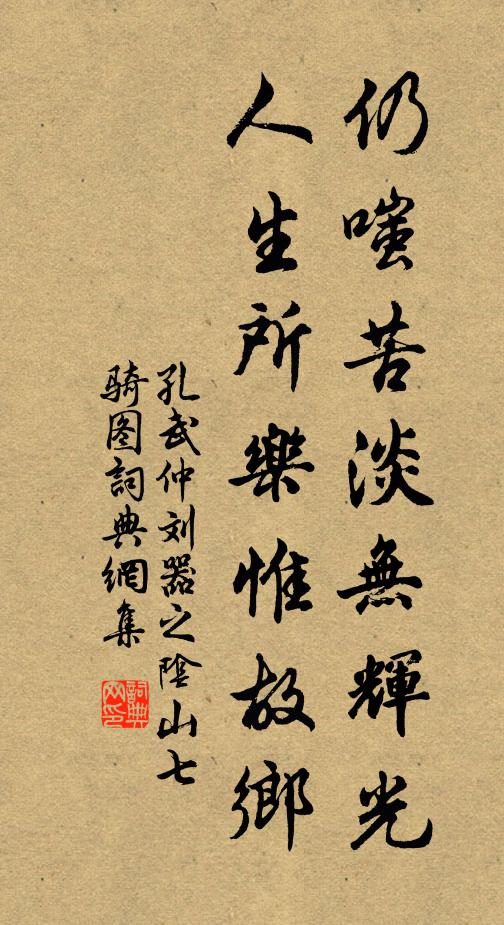 仍嗤苦淡無輝光
人生所樂惟故鄉
孔武仲刘器之陰山七
骑图詞典網集
詞典网印